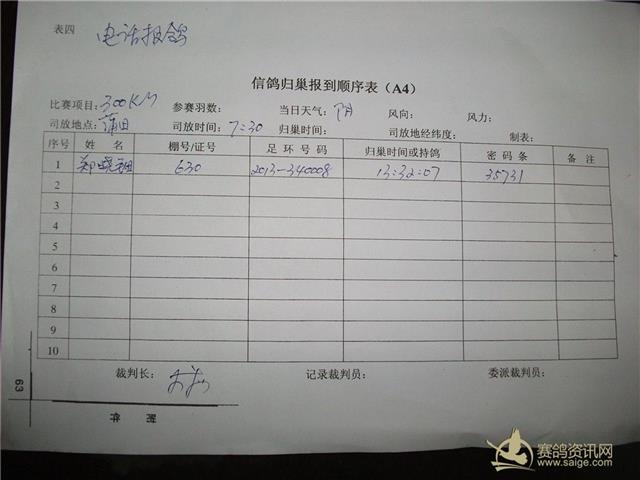 表四 电话报鸽
信鸽归巢报到顺序表（A4）
比赛项目：300KM 参赛羽数： 当日天气：阴 风向： 风力：
司放地点：莆田 司放时间：7:30 归巢时间： 司放地经纬度： 制表：
序号 姓 名 棚号/证号 足 环 号 码 归巢时间或持鸽 密 码 条 备 注
1 郑 630 2013-340008 13:32:07 35731
2
3
4
5
6
7
8
9
10
裁判长： 记录裁判员： 委派裁判员：
63
赛鸽资讯网
www.saige.com